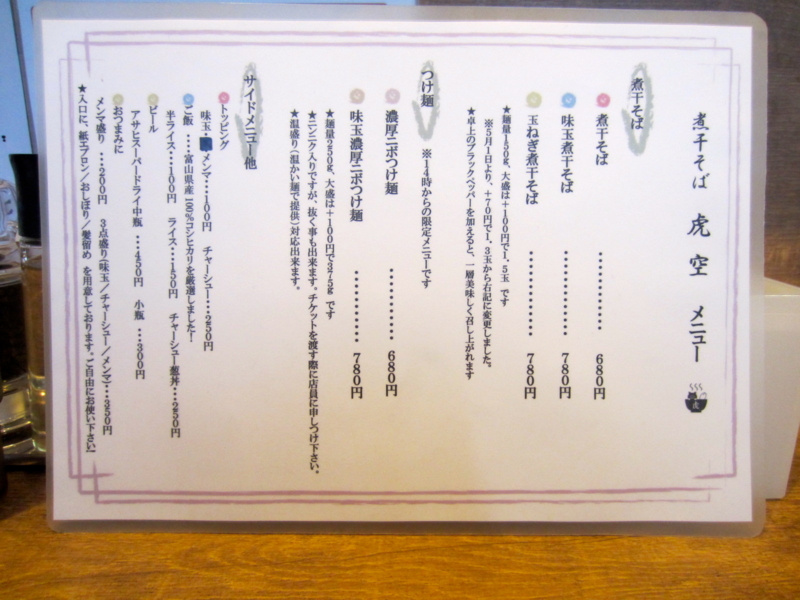 煮干そば 虎空 メニュー
虎
煮干そば
煮干そば ・・・・・・・・・・・ 680円
味玉煮干そば ・・・・・・・・・・・ 780円
玉ねぎ煮干そば ・・・・・・・・・・・ 780円
★麺量150g、大盛は+100円で1.5玉 です
※5月1日より、+70円で1.3玉から右記に変更しました。
★卓上のブラックペッパーを加えると、一層美味しく召し上がれます
つけ麺 ※14時からの限定メニューです
濃厚ニボつけ麺 ・・・・・・・・・・・ 680円
味玉濃厚ニボつけ麺 ・・・・・・・・・・・ 780円
★麺量250g、大盛は+100円で375g です
★ニンニク入りですが、抜く事も出来ます。チケットを渡す際に店員に申しつけ下さい。
★温盛り(温かい麺で提供)対応出来ます。
サイドメニュー他
トッピング
味玉・ メンマ・・・・100円 チャーシュー・・・250円
ご飯 ・・・・富山県産100%コシヒカリを厳選しました!
半ライス・・・・100円 ライス・・・・150円 チャーシュー葱丼・・・・250円
ビール
アサヒスーパードライ中瓶 ・・・450円 小瓶 ・・・300円
おつまみに
メンマ盛り ・・・200円 3点盛り(味玉/チャーシュー/メンマ)・・・350円
★入口に、紙エプロン/おしぼり/髪留め を用意しております。ご自由にお使い下さい!